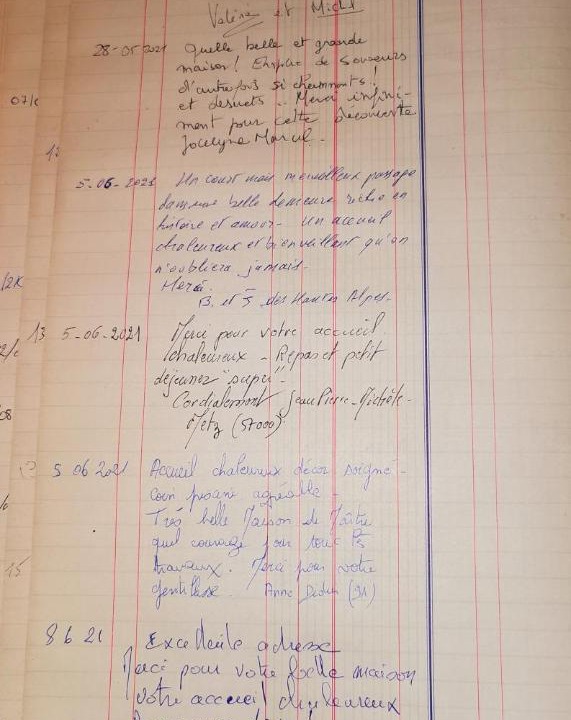 Valérie et Michel
28-05-2021 Quelle belle et grande
maison ! Emplie de souvenirs
d'autrefois si charmants !
et désuets .. Merci infini-
ment pour cette découverte
Jocelyne Marcel.
5-06-2021 Un court mais merveilleux passage
dans une belle demeure riche en
histoire et amour - un accueil
chaleureux et bienveillant qu'on
n'oubliera jamais -
Merci.
B. et J. des Hautes Alpes.
5-06-2021 Merci pour votre accueil
chaleureux - Repas et petit
déjeuner "super" -
Cordialement Jean Pierre - Michèle -
Metz (57000)
5 06 2021 Accueil chaleureux décor soigné -
coin piscine agréable -
Très belle Maison de Maître
quel courage pour tous ces
travaux. Merci pour votre
gentillesse. Anne Didier (91)
8 6 21 Excellente adresse
Merci pour votre belle maison
votre accueil chaleureux
07/
13
15